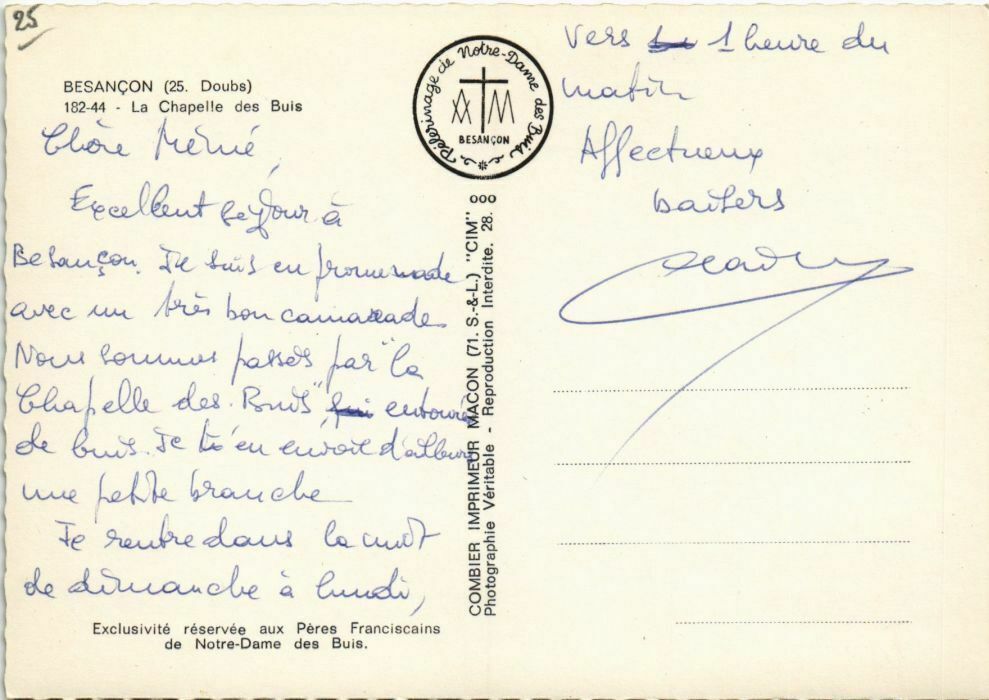 25
BESANÇON (25. Doubs)
182-44 - La Chapelle des Buis
Chère Mémé,
Excellent séjour à
Besançon. Je suis en promenade
avec un très bon camarade
Nous sommes passés par "la
Chapelle des Buis" entourée
de buis. Je t'en envoie d'ailleurs
une petite branche
Je rentre dans la nuit
de dimanche à lundi,
Exclusivité réservée aux Pères Franciscains
de Notre-Dame des Buis.
Pèlerinage de Notre-Dame des Buis
A M
BESANÇON
COMBIER IMPRIMEUR MACON (71. S.-&-L.) "CIM"
Photographie Véritable - Reproduction Interdite. 28.
vers 1 heure du
matin
Affectueux
baisers